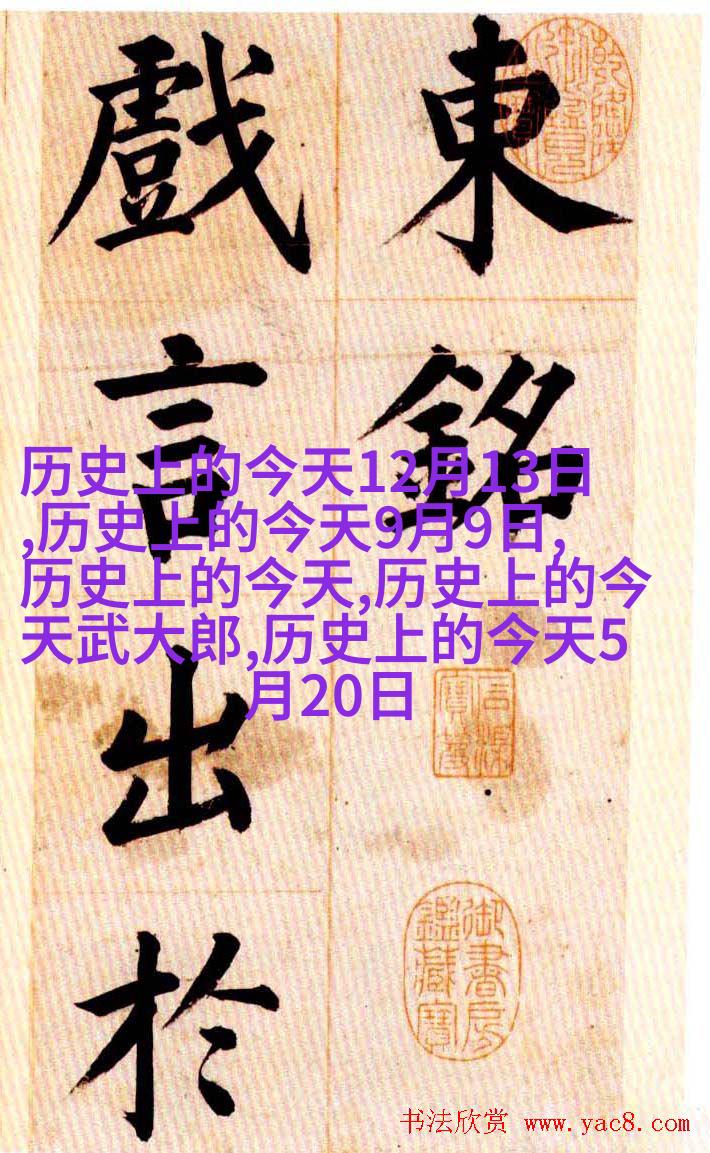 東銘
戲言出於
历史上的今天12月13日
,历史上的今天9月9日,
历史上的今天,历史上的今
天武大郎,历史上的今天5
月20日
石渠寶笈
御書房鑑藏寶
书法欣赏 www.yac8.com